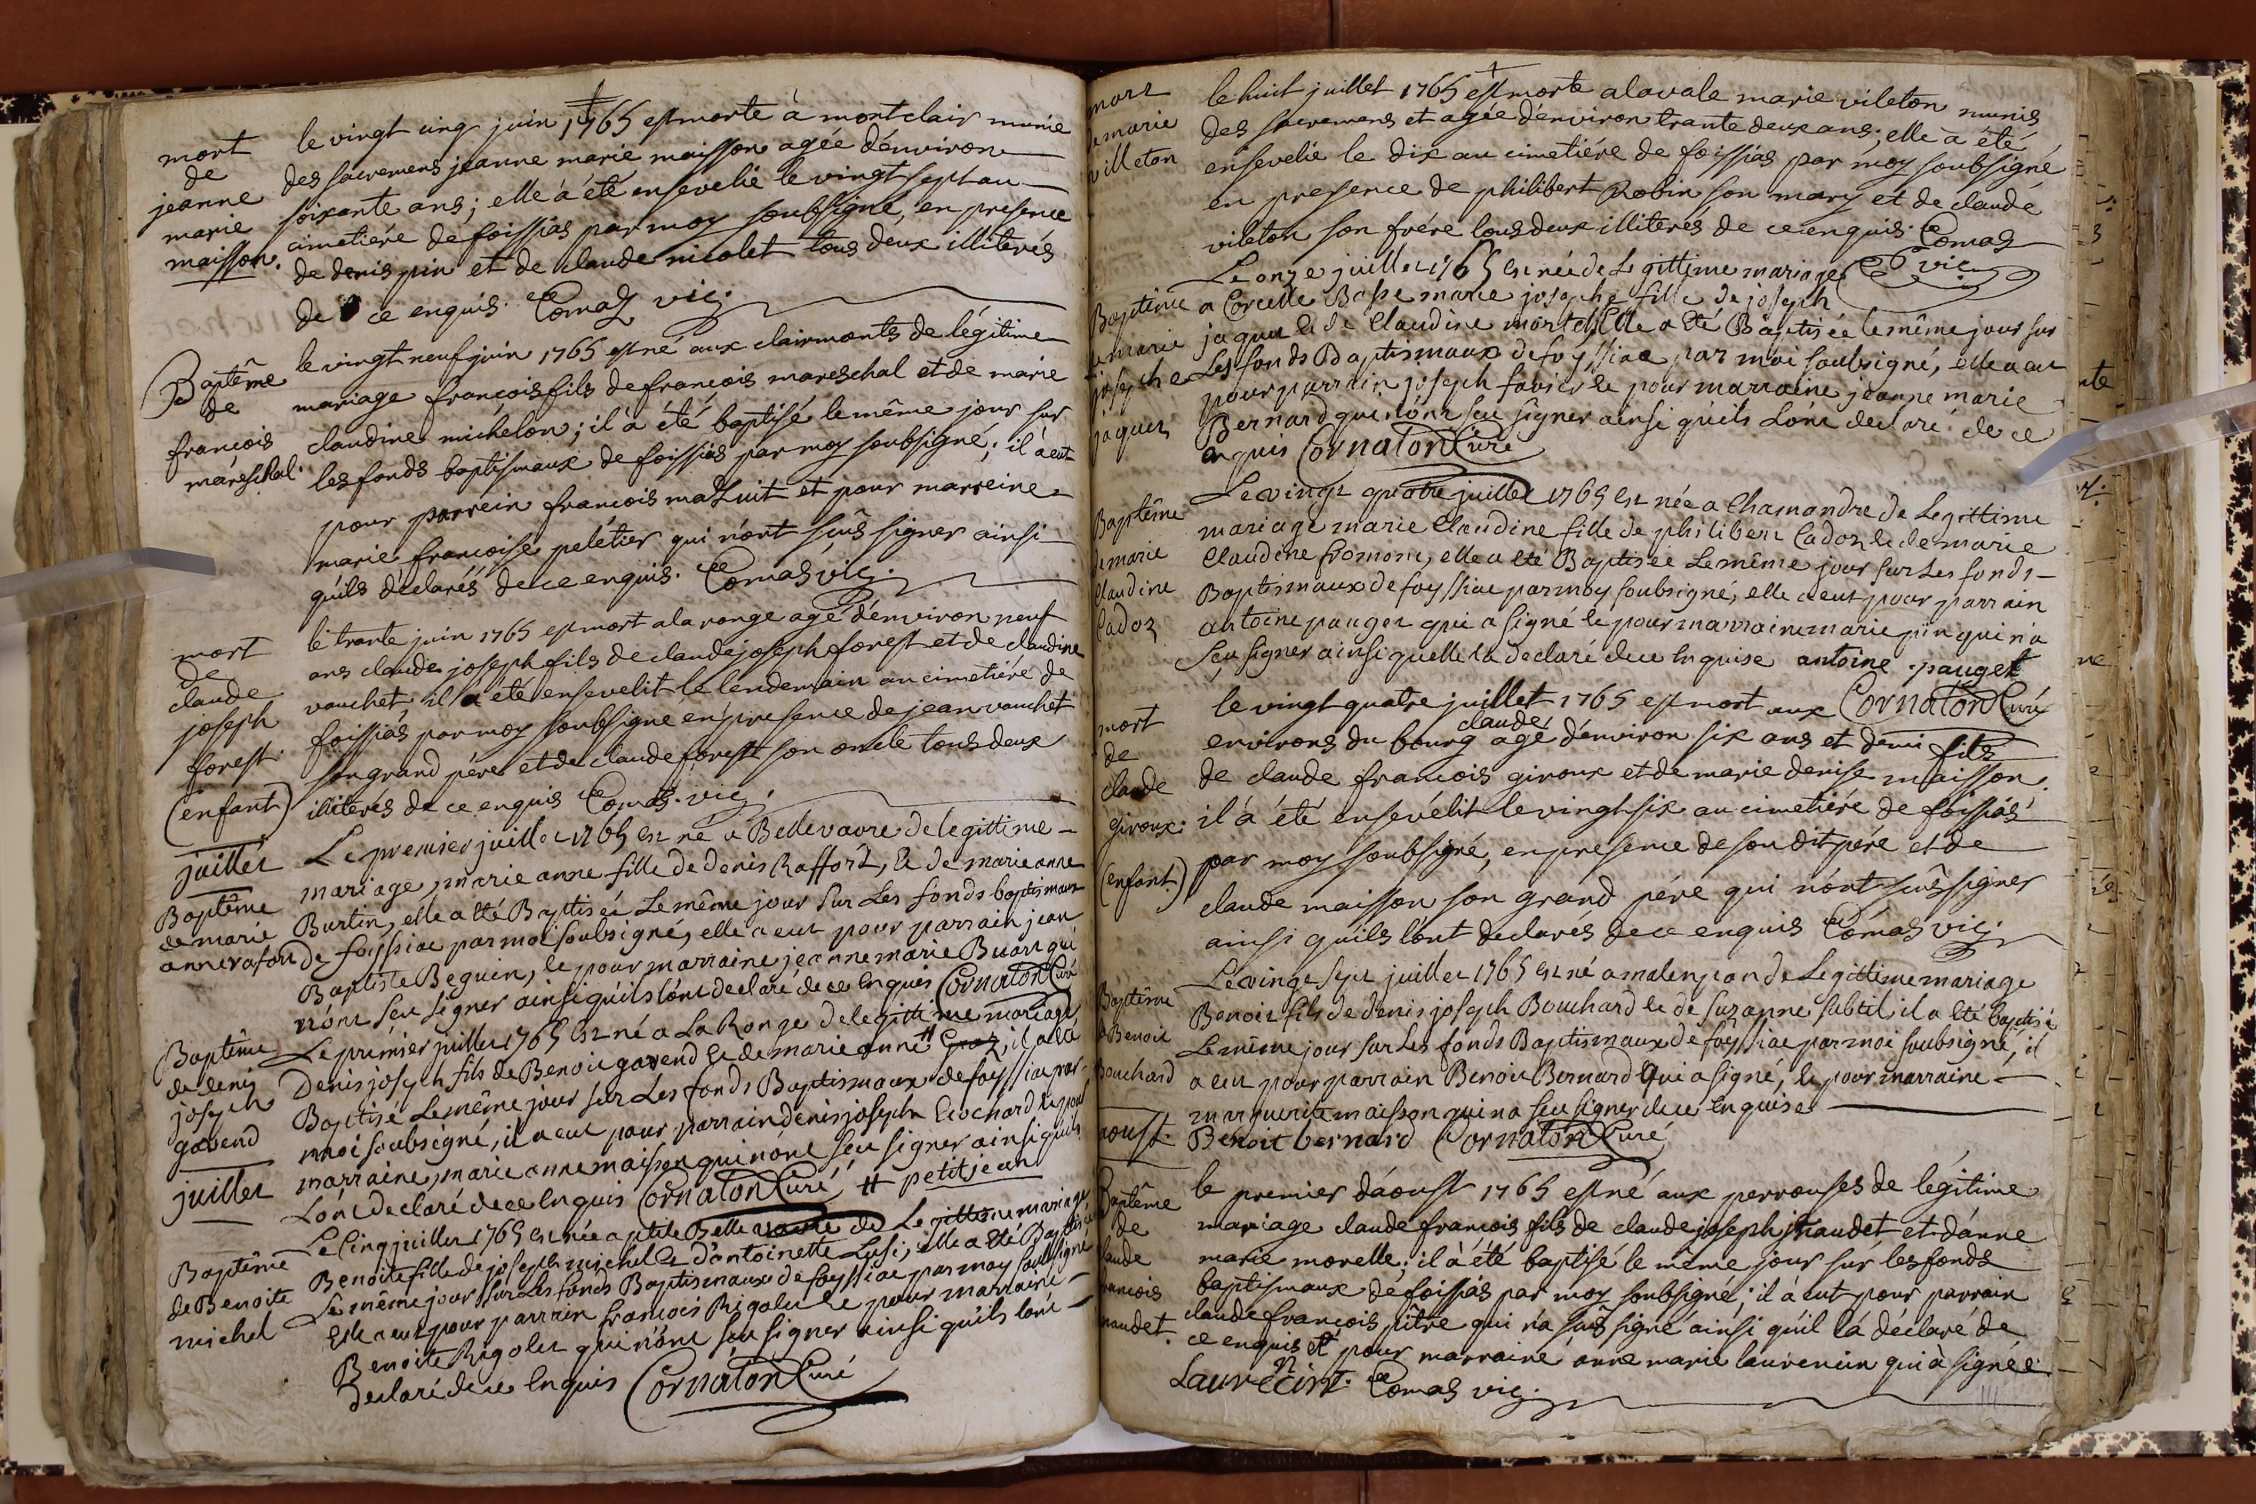 mort
de
jeanne
marie
maisson.
le vingt cinq juin 1765 est morte à montclair munie
des sacremens jeanne marie maisson agée d'environ
soixante ans; elle à été ensevelie le vingt sept au
cimetiére de foissiás par moy soubsigné, en presence
de denis pin et de claude nicolet tous deux illiterés
de ce enquis. Comas vic.
Baptême
de
françois
mareschal.
le vingt neuf juin 1765 est né aux clairmonts de légitime
mariage françois fils de françois mareschal et de marie
claudine michelon; il à été baptisé le même jour sur
les fonds baptismaux de foissiás par moy soubsigné; il à eut
pour parrein françois mazuit et pour marreine
marie françoise peletier qui n'ont sûs signer ainsi
qu'ils déclarés de ce enquis. Comas vic.
mort
de
claude
joseph
forest
(enfant)
le trante juin 1765 est mort a la ronge agé d'environ neuf
ans claude joseph fils de claude joseph forest et de claudine
vauchet, il à été ensevelit le lendemain au cimetiére de
foissiás par moy soubsigné en presence de jean vauchet
son grand pére et de claude forest son oncle tous deux
illiterés de ce enquis Comas. vic.
juillet
Baptême
de marie
anne rafou
Le premier juillet 1765 est né a Bellevavre de legittime
mariage, marie anne fille de denis Raffort, et de marie anne
Burtin, elle a été Baptisée Le même jour sur Les fonds baptismaux
de foissiac par moi soubsigné, elle a eut pour parrain jean
Baptiste Beguin, et pour marraine jeanne marie Buart qui
n'ont seu signer ainsi qu'ils l'ont declaré de ce Enquis Cornaton Curé
Baptême
de denis
joseph
gavend
juillet
Le premier juillet 1765 est né a La Ronge de legittime mariage
Denis joseph fils de Benoit gavend et de marie anne # , il a été
Baptisé Le même jour sur Les fonds Baptismaux de foyssiac par
moi soubsigné, il a eut pour parrain denis joseph Ecochard et pour
marraine, marie anne maison qui n'ont seu signer ainsi qu'ils
L'ont declaré de ce Enquis Cornaton Curé # petitjean
Baptême
de Benoite
michel
Le Cinq juillet 1765 est née a ptite Bellevavre de Legittime mariage
Benoite fille de joseph michel et d'antoinette Lusi, elle a été Baptisée
Le même jour sur Les fonds Baptismaux de foyssiac par moy soussigné
Elle a eut pour parrain françois Rigolet et pour marraine
Benoite Rigolet qui n'ont seu signer ainsi qu'ils l'ont
declaré de ce Enquis Cornaton Curé
mort
de marie
villeton
le huit juillet 1765 est morte a lavale marie vileton munis
des sacremens et agée d'environ trante deux ans; elle à été
ensevelie le dix au cimetiére de foissiás par moy soubsigné
en presence de philibert Robin son mary et de claude
vileton son frére tous deux illiteres de ce enquis. Comas
vic.
Baptême
de marie
josephe
jaquet
Le onze juillet 1765 est née de Legittime mariage
a Corcelle Basse marie josephe fille de joseph
jaquet et de Claudine martel, Elle a été Baptisée le même jour sur
Les fonds Baptismaux de foyssiac par moi soubsigné, elle a eu
pour parrain joseph favier et pour marraine jeanne marie
Bernard qui n'ont seu signer ainsi qu'ils L'ont declaré de ce
enquis Cornaton Curé
Baptême
de marie
Claudine
Cadoz
Le vingt quatre juillet 1765 est née a Chamandre de Legittime
mariage marie Claudine fille de philibert Cadoz et de marie
Claudine fromont, elle a été Baptisée Le même jour sur Les fonds
Baptismaux de foyssiac par moy soubsigné, elle a eut pour parrain
antoine pauget qui a signé et pour marraine marie pin qui n'a
seu signer ainsi quelle l'a declaré de ce Enquise antoine pauget
Cornaton Curé
mort
de
claude
giroux.
(enfant)
le vingt quatre juillet 1765 est mort aux
environs du bourg claude agé d'environ six ans et demi fils
de claude françois giroux et de marie denise maisson.
il à été ensévelit le vingt six au cimetiére de foissiás
par moy soubsigné, en presence de son dit pére et de
claude maisson son grand pére qui n'ont sûs signer
ainsi qu'ils l'ont declarés de ce enquis Comas vic.
Baptême
de Benoit
Bouchard
Le vingt sept juillet 1765 est né a malenpan de Legittime mariage
Benoit fils de denis joseph Bouchard et de suzanne subtil, il a été baptisé
Le même jour sur Les fonds Baptismaux de foyssiac par moi soubsigné, il
a eut pour parrain Benoit Bernard Qui a signé, et pour marraine
marguerite maisson qui n'a seu signer de ce Enquise
Benoit bernard Cornaton Curé
aoust.
Baptême
de
claude
françois
naudet.
le premier d'áoust 1765 est né aux perrouses de légitime
mariage claude françois fils de claude joseph naudet et d'anne
marie morelle; il à été baptisé le même jour sur les fonds
baptismaux de foissiás par moy soubsigné; il à eut pour parrain
claude françois pitre qui n'a sûs signé ainsi qu'il l'a déclaré de
ce enquis et pour marraine anne marie laurencin qui à signée
Laurencint. Comas vic.